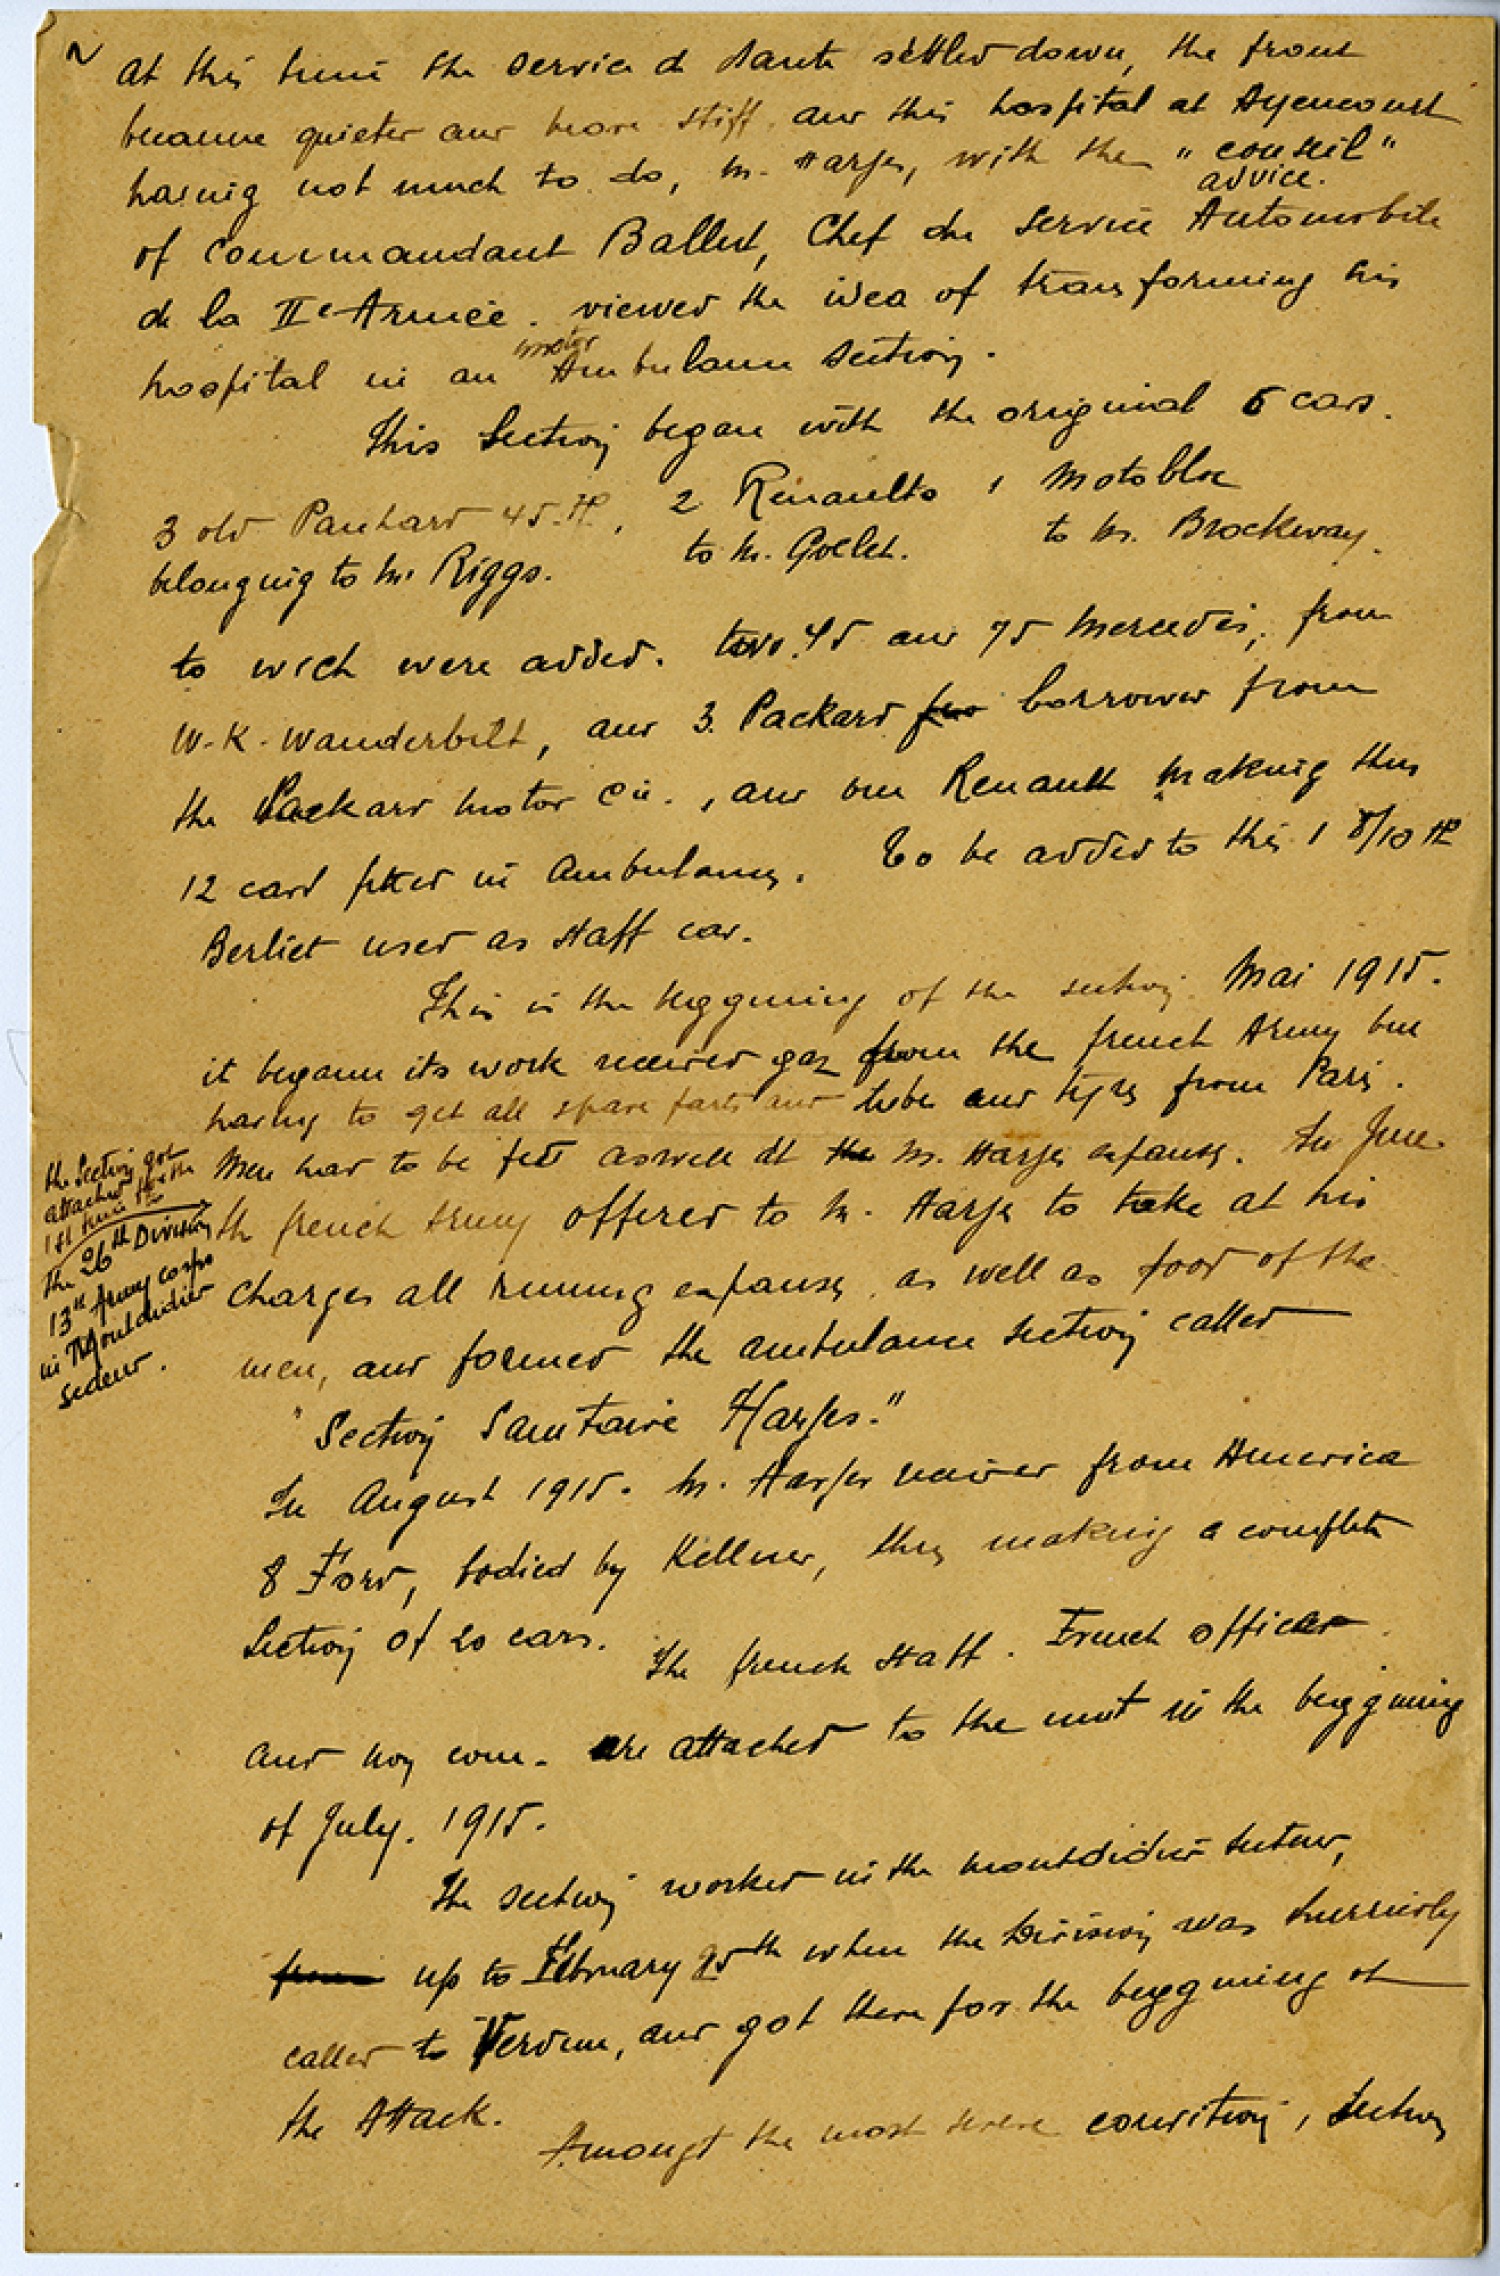 At this time the service de Sante settled down, the front
became quieter and more stiff. and this hospital at Ayencourt
having not much to do, M. Harjes, with the "conseil"
advice.
of Commandant Ballut, Chef du Service Automobile
de la IIe Armée. viewed the idea of transforming his
motor
hospital in an Ambulance Section.
This Section began with the original 6 cars.
3 old Panhard 45. HP, 2 Renaults 1 Motobloc
belonging to Mr Riggs. to M. Goelet. to M. Brockway.
to wich were added. two. 45 and 75 Mercedes, from
W. K. Wanderbilt, and 3. Packard borrowed from
the Packard Motor Cie., and one Renault making thus
12 card fitted in Ambulances. To be added to this 1 8/10 HP
Berliet used as staff car.
This is the beggining of the section. Mai 1915.
it begann its work received gaz from the french Army but
having to get all spare parts and tubes and tyres from Paris.
Men had to be fed aswell at the M. Harjes expenses. In June.
the french Army offered to M. Harjes to take at his
charges all running expenses, as well as food of the
men, and formed the ambulance section called
"Section Sanitaire Harjes."
the Section got
attached
1st time to the
the 26th Division
13th Army corps
in Montdidier
secteur.
In August 1915. M. Harjes received from America
8 Ford, bodied by Kellner, thus making a complete
Section of 20 cars. The french staff. French officer
and non com. are attached to the unit in the beggining
of July. 1915.
The section worked in the Montdidier secteur,
from up to February 25th when the Division was hurriedly
called to Verdun, and got there for the beggining of
the Attack. Amongst the most severe condition, Section